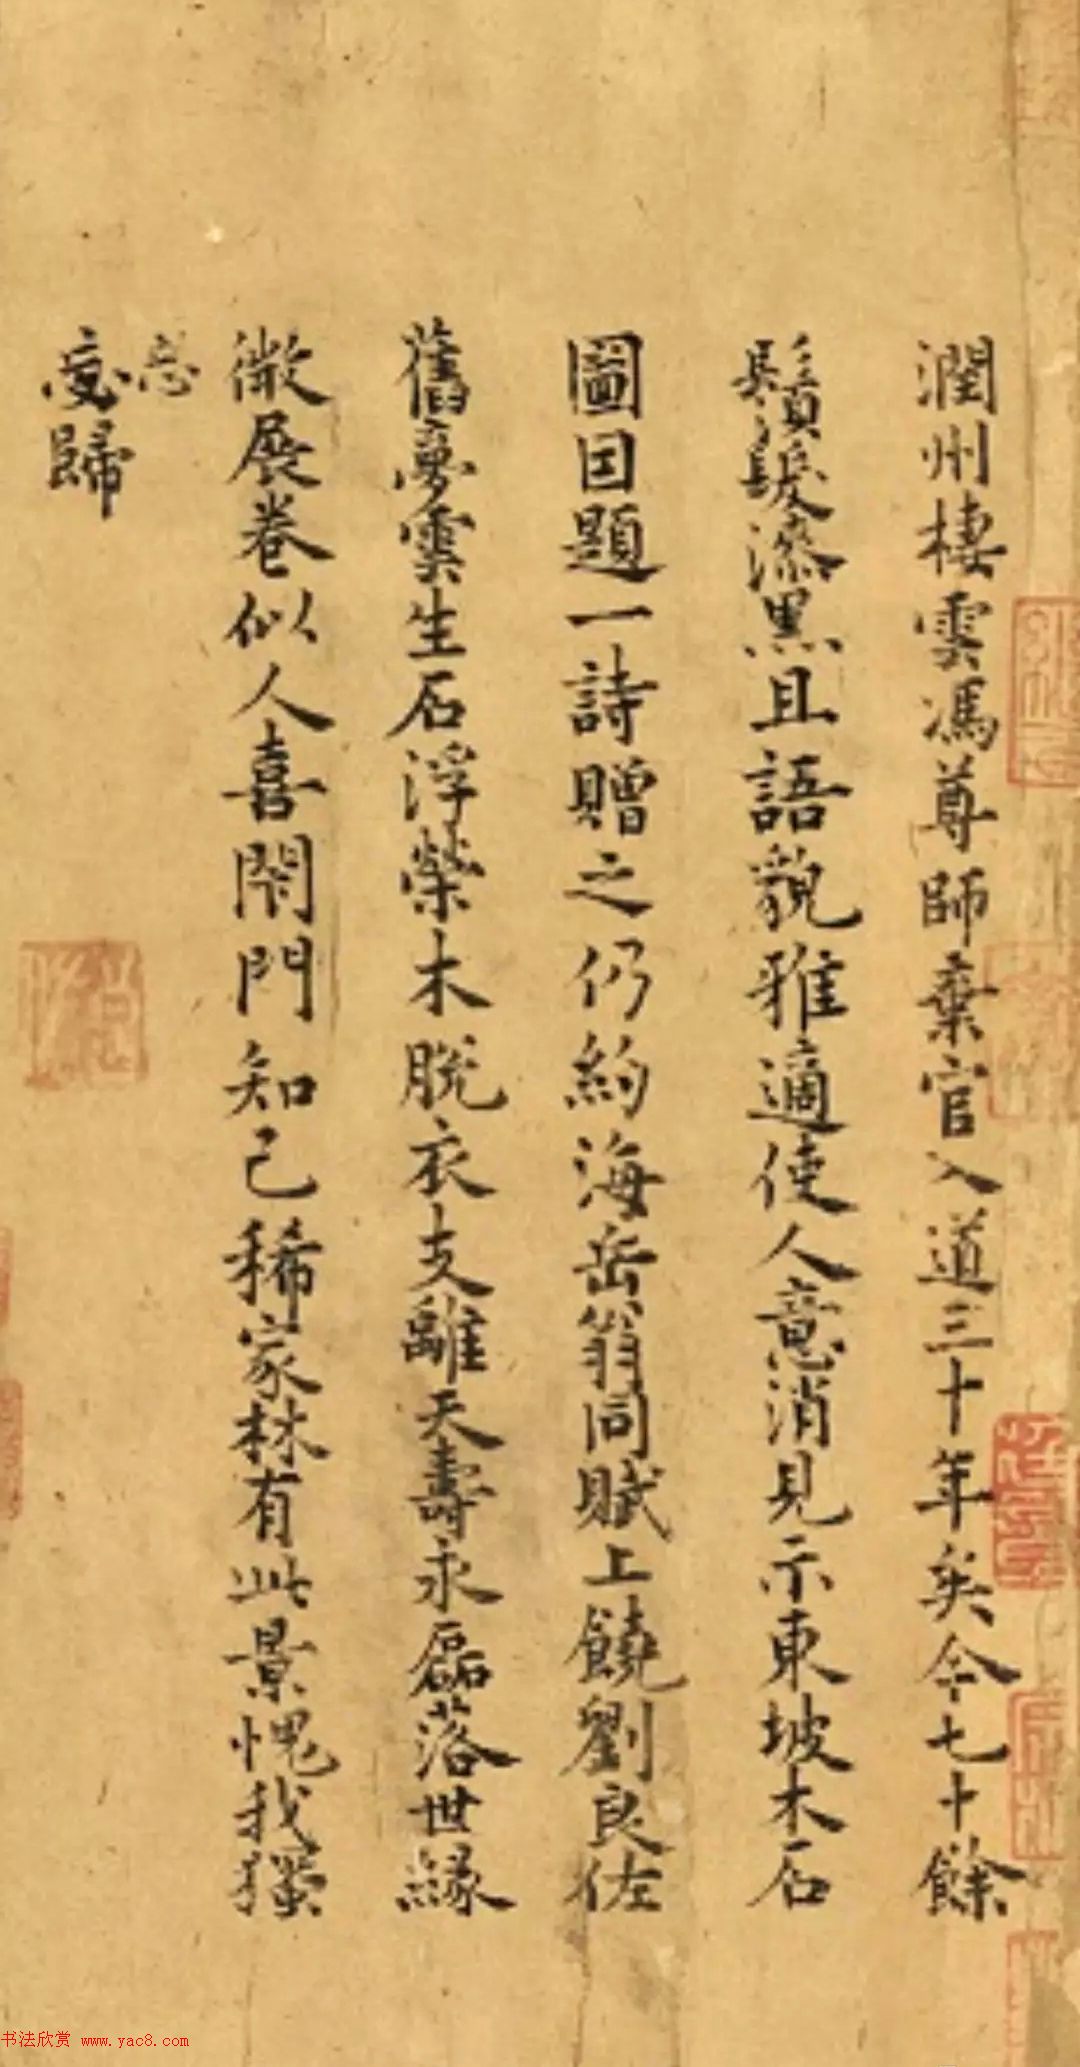 潤州棲雲馮尊師棄官入道三十年矣今七十餘
鬚髮漆黑且語貌雅適使人意消見示東坡木石
圖因題一詩贈之仍約海岳翁同賦上饒劉良佐
舊夢雲生石浮榮木脫衣支離天壽永磊落世緣
微展卷似人喜閉門知己稀家林有此景愧我獨
忘
忘歸
书法欣赏 www.yac8.com